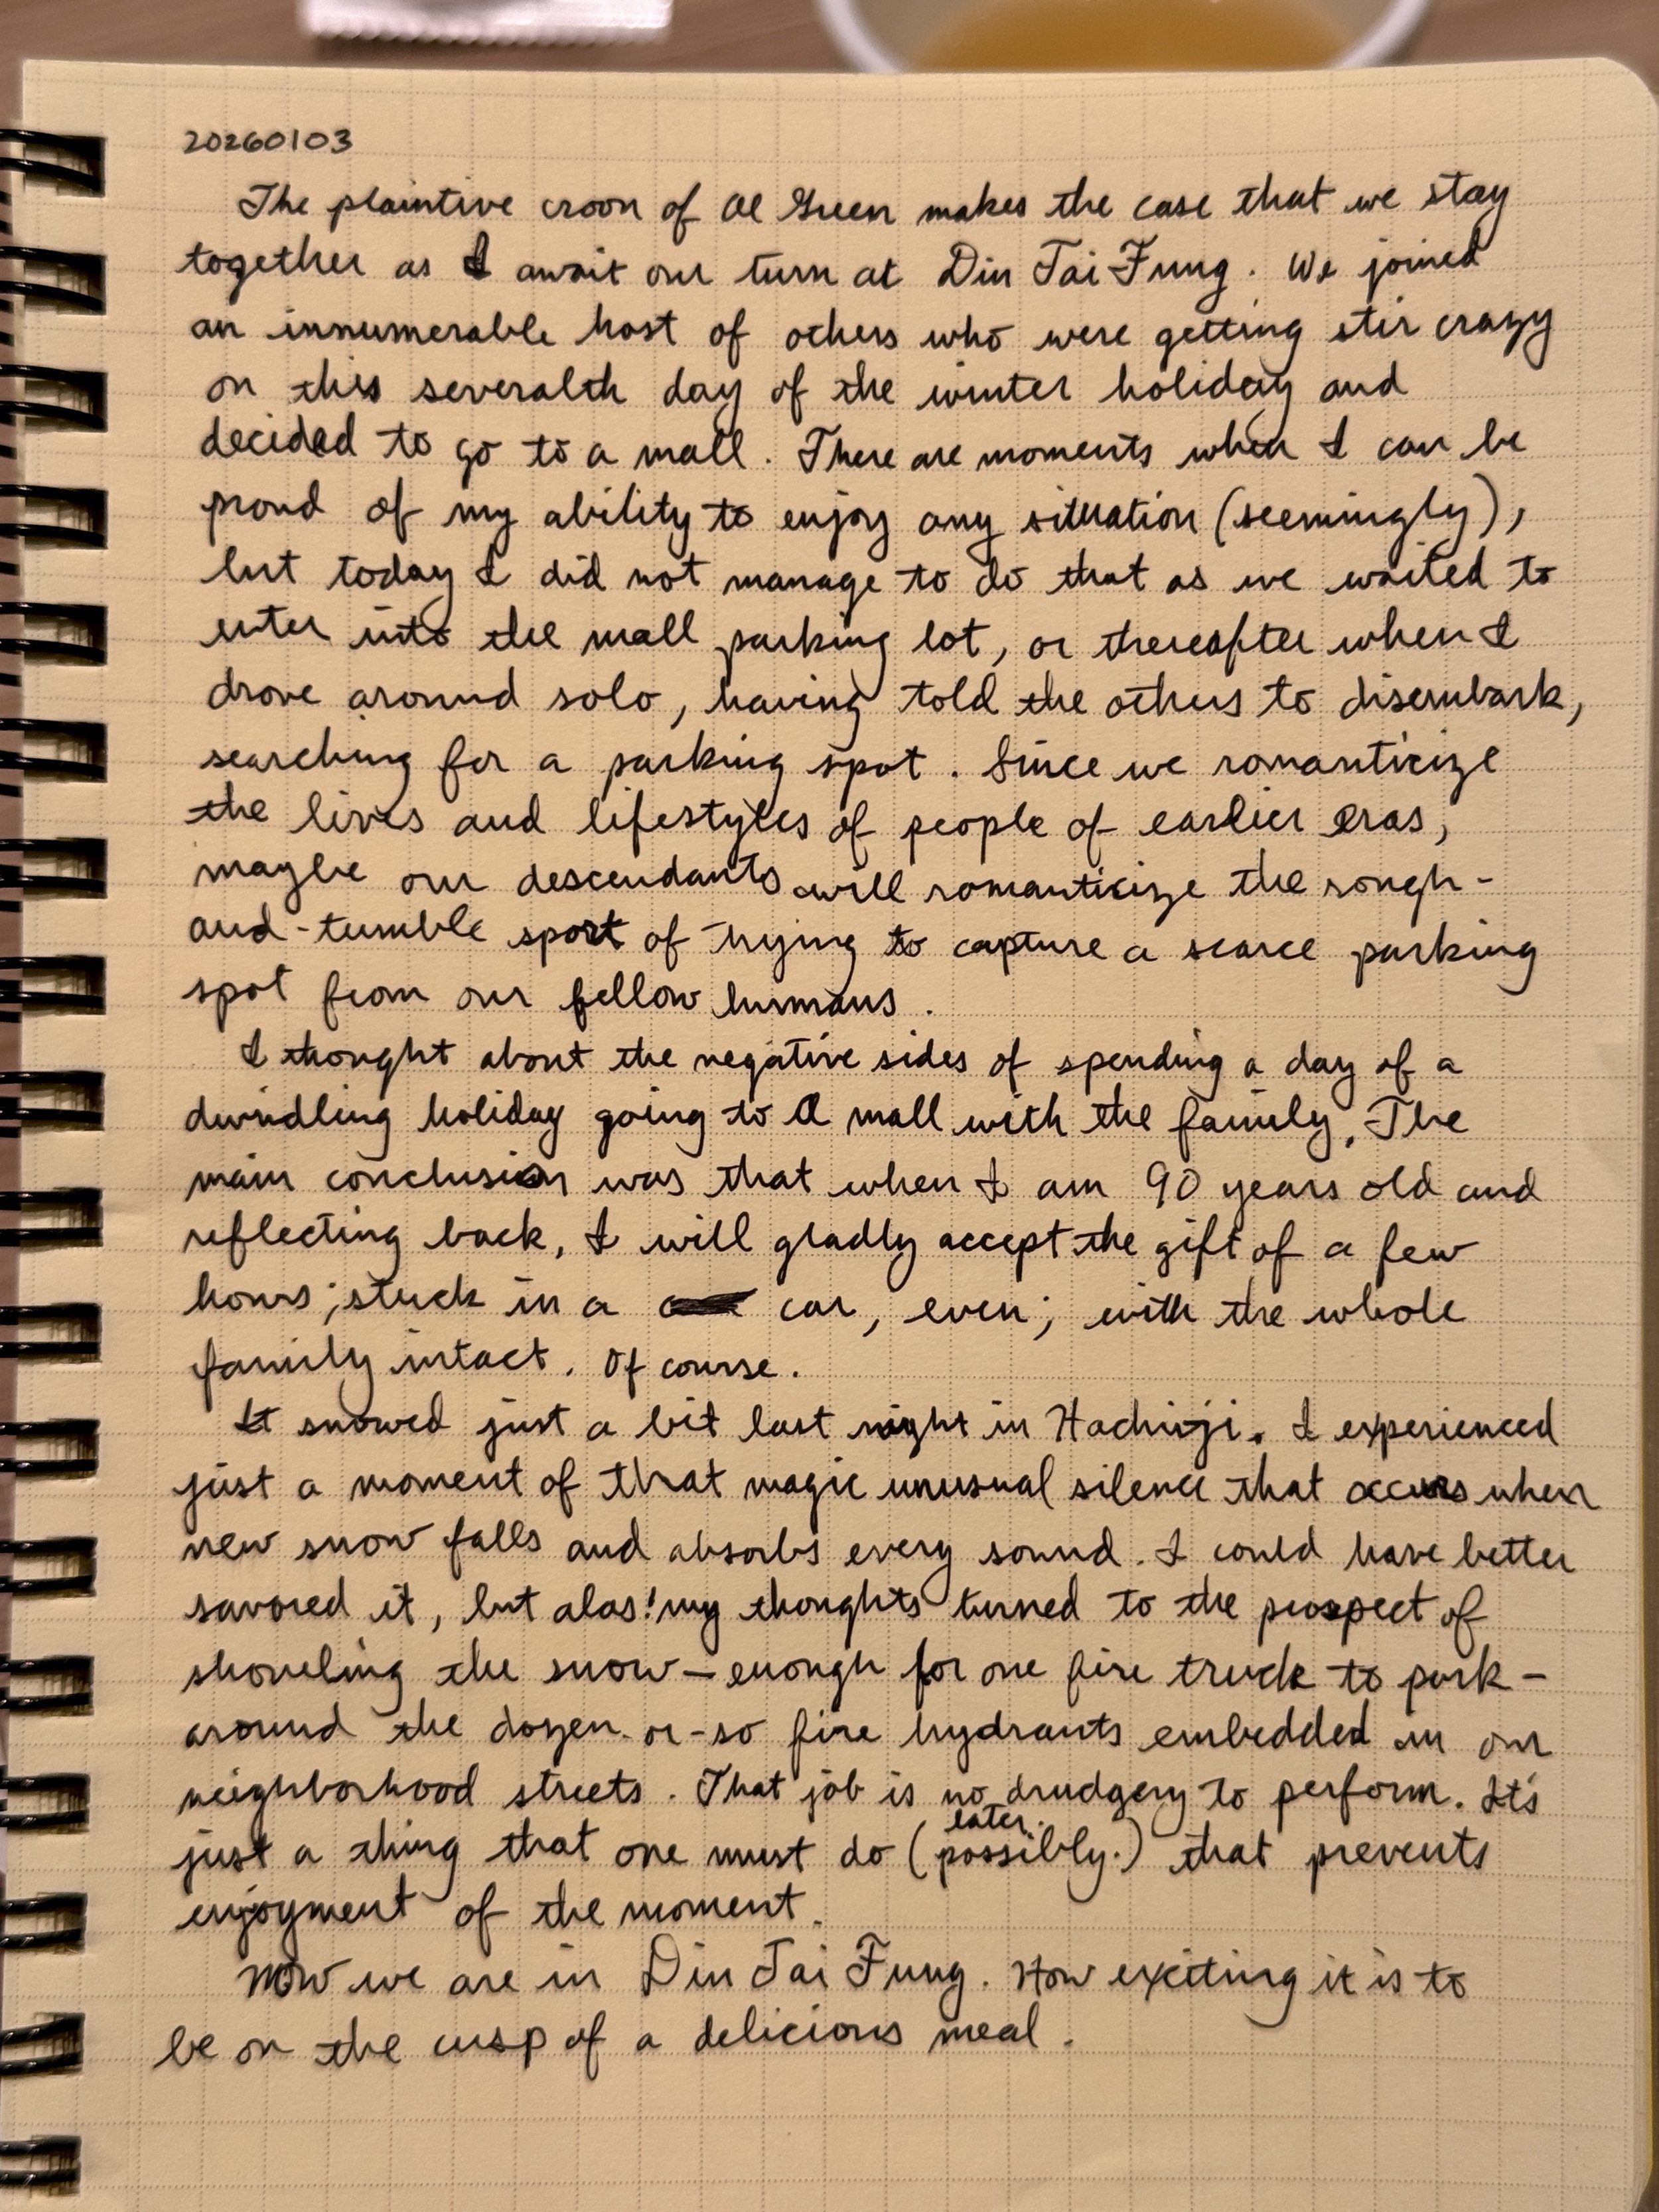 20260103
The plaintive croon of Al Green makes the case that we stay
together as I await our turn at Din Tai Fung. We joined
an innumerable host of others who were getting stir crazy
on this severalth day of the winter holiday and
decided to go to a mall. There are moments when I can be
proud of my ability to enjoy any situation (seemingly),
but today I did not manage to do that as we waited to
enter into the mall parking lot, or thereafter when I
drove around solo, having told the others to disembark,
searching for a parking spot. Since we romanticize
the lives and lifestyles of people of earlier eras,
maybe our descendants will romanticize the rough-
and-tumble sport of trying to capture a scarce parking
spot from our fellow humans.
I thought about the negative sides of spending a day of a
dwindling holiday going to a mall with the family. The
main conclusion was that when I am 90 years old and
reflecting back, I will gladly accept the gift of a few
hours; stuck in a car, even; with the whole
family intact. Of course.
It snowed just a bit last night in Hachioji. I experienced
just a moment of that magic unusual silence that occurs when
new snow falls and absorbs every sound. I could have better
savored it, but alas! my thoughts turned to the prospect of
shoveling the snow—enough for one fire truck to park—
around the dozen-or-so fire hydrants embedded in our
neighborhood streets. That job is no drudgery to perform. It's
just a thing that one must do (possibly.) later. that prevents
enjoyment of the moment.
Now we are in Din Tai Fung. How exciting it is to
be on the cusp of a delicious meal.